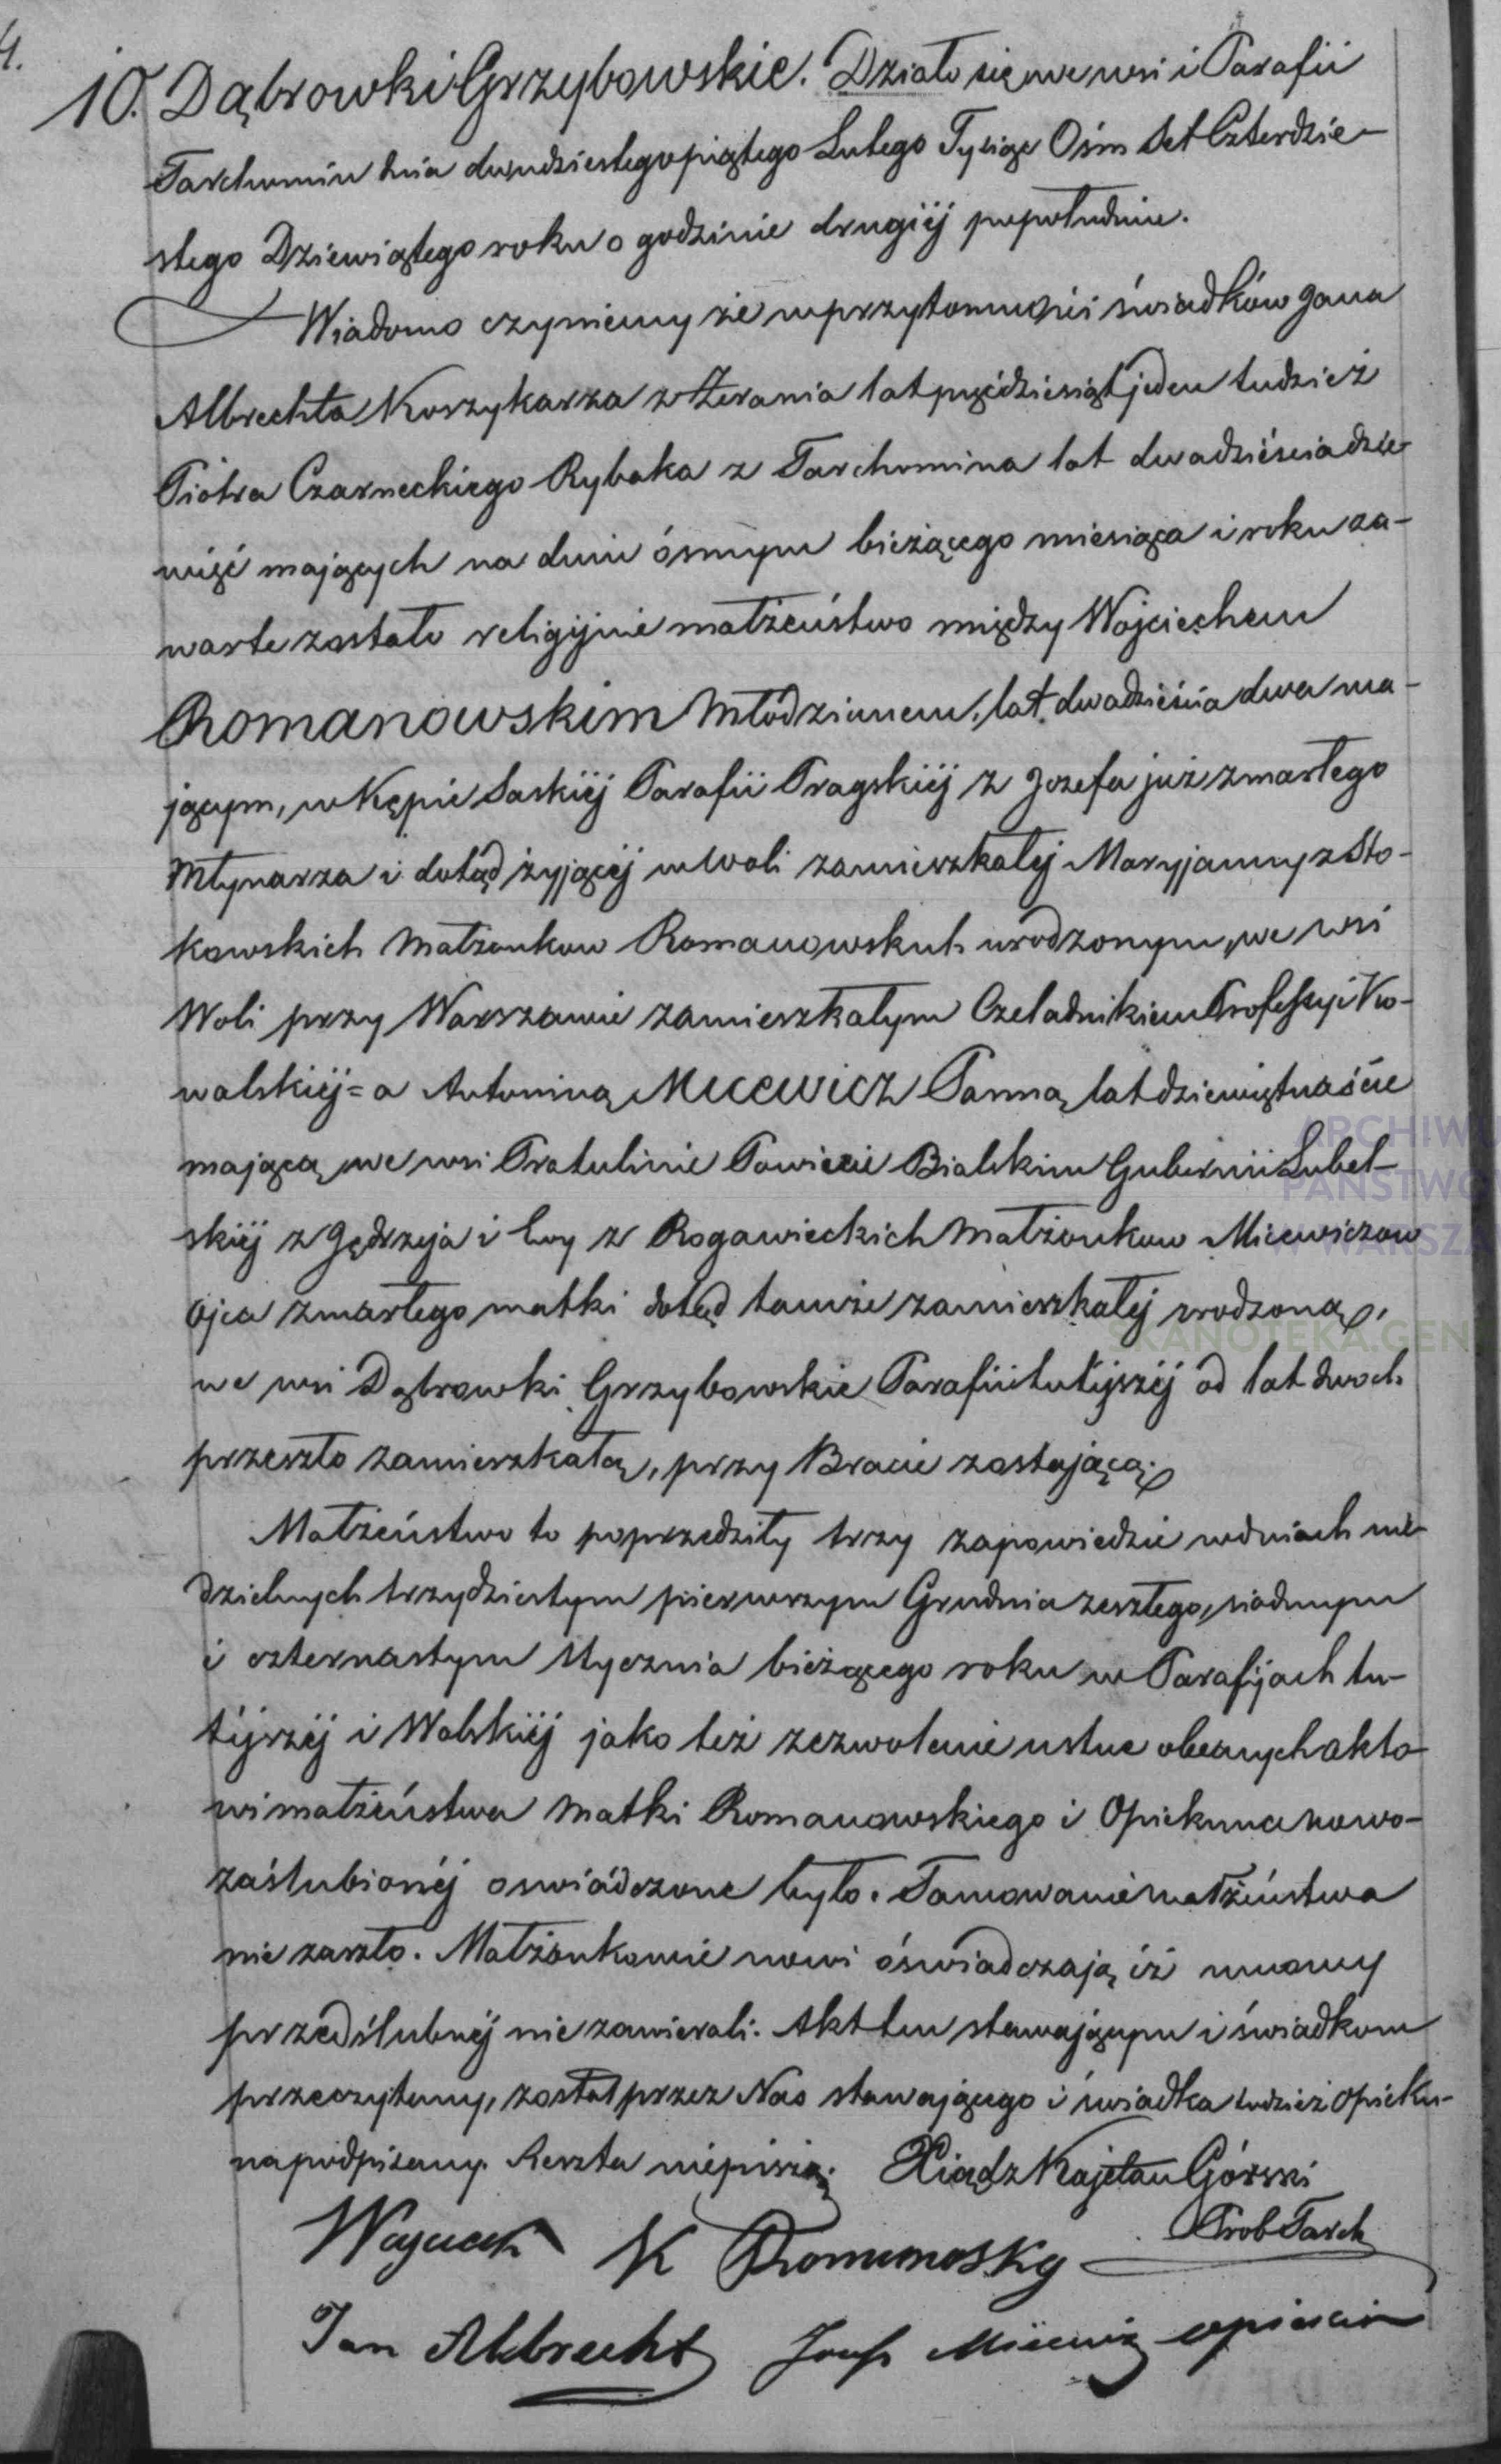 4.
10. Dąbrowki Grzybowskie. Działo się we wsi i Parafii
Tarchomin dnia dwudziestego piątego Lutego Tysiąc Ośm Set Czterdzie-
stego Dziewiątego roku o godzinie drugiéj popołudniu.
Wiadomo czyniemy że w przytomności świadków Jana
Albrechta Koszykarza z Żerania lat pięćdziesiąt jeden tudzież
Piotra Czarneckiego Rybaka z Tarchomina lat dwadzieścia dzie-
więć mających na dniu ósmym bieżącego miesiąca i roku za-
warte zostało religijnie małżeństwo między Wojciechem
Romanowskim Młodzianem, lat dwadzieścia dwa ma-
jącym, w Kępie Saskiéj Parafii Pragskiéj z Jozefa już zmarłego
Młynarza i dotąd żyjącéj w Woli zamieszkałéj Maryjanny z Sto-
kowskich Małżonkow Romanowskich urodzonym, we wsi
Woli przy Warszawie zamieszkałym Czeladnikiem Professyi Ko-
walskiéj = a Antoniną Micewicz Panną lat dziewiętnaście
mającą we wsi Pratulinie Powiecie Bialskim Gubernii Lubel-
skiéj z Jędrzeja i Ewy z Rogawieckich Małżonkow Micewiczow
ojca zmarłego matki dotąd tamże zamieszkałéj urodzoną,
we wsi Dąbrowki Grzybowskie Parafii tutéjszéj od lat dwoch
przeszło zamieszkałą, przy Bracie zostającą.
Małżeństwo to poprzedziły trzy zapowiedzie w dniach nie-
dzielnych trzydziestym pierwszym Grudnia zeszłego, siodmym
i czternastym Stycznia bieżącego roku w Parafijach tu-
téjszéj i Wolskiéj jako też zezwolenie ustne obecnych akto-
wi małżeństwa Matki Romanowskiego i Opiekuna nowo-
zaślubionéj oświádczone było. Tamowanie małżeństwa
nie zaszło. Małżonkowie nowi óświadczają iż umowy
przedślubnéj nie zawierali. Akt ten stawającym i świadkom
przeczytany, został przez Nas stawającego i świadka tudzież Opieku-
na podpisany. Reszta niepiszą. Xiądz Kajetan Górski
Prob Tarch
K Romanosky
Jan Albrecht
ARCHIWUM
PAŃSTWO
W WARSZA
SKANOTEKA.GEN